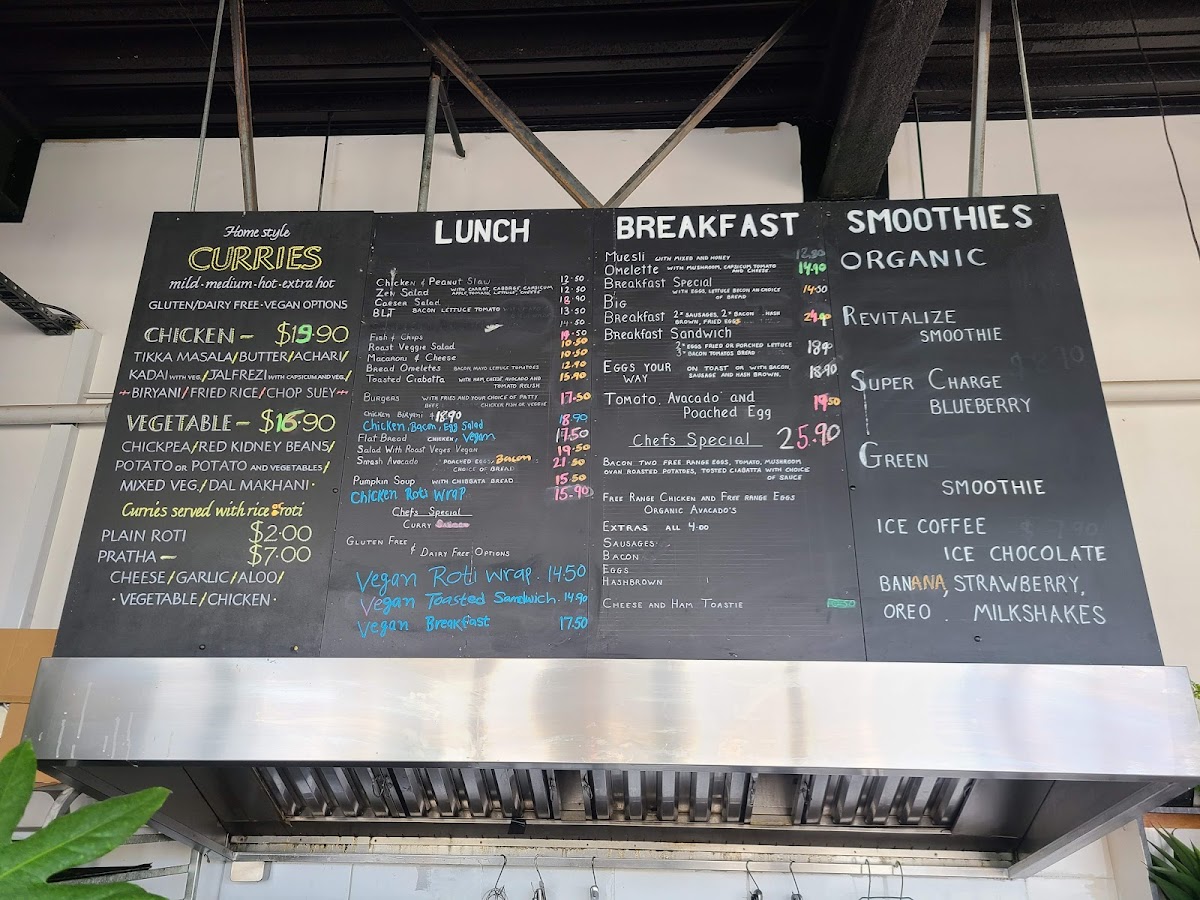 Home style
CURRIES
mild-medium-hot-extra hot
GLUTEN/DAIRY FREE-VEGAN OPTIONS
CHICKEN — $19.90
TIKKA MASALA/BUTTER/ACHARI/
KADAI WITH VEG./JALFREZI WITH CAPSICUM AND VEG./
BIRYANI/FRIED RICE/CHOP SUEY
VEGETABLE — $16.90
CHICKPEA/RED KIDNEY BEANS/
POTATO OR POTATO AND VEGETABLES/
MIXED VEG./DAL MAKHANI.
Curries served with rice & roti
PLAIN ROTI $2.00
PRATHA — $7.00
CHEESE/GARLIC/ALOO/
VEGETABLE/CHICKEN.
LUNCH
Chicken & Peanut Slaw 12.50
Zen Salad WITH CARROT, CABBAGE, CAPSICUM, 12.50
APPLE, TOMATO, LETTUCE, CHEESE
Caesar Salad 18.90
BLT BACON LETTUCE TOMATO 13.50
14.50
Fish & Chips
Roast Veggie Salad 10.50
Macaroni & Cheese 10.50
Bread Omeletes BACON, MAYO LETTUCE TOMATOES 12.90
Toasted Ciabatta WITH HAM, CHEESE, AVOCADO AND 15.90
TOMATO RELISH
Burgers WITH FRIES AND YOUR CHOICE OF PATTY 17.50
BEEF, CHICKEN FISH OR VEGGIE
Chicken Biryani $18.90
Chicken, Bacon, Egg Salad 18.90
Flat Bread CHICKEN, Vegan 17.50
Salad With Roast Veges Vegan 19.50
Smash Avocado POACHED EGGS, Bacon 21.50
CHOICE OF BREAD
Pumpkin Soup WITH CHIBBATA BREAD 15.50
Chicken Roti Wrap 15.90
Chefs Special
Curry
Gluten Free
& Dairy Free Options
Vegan Roti Wrap. 14.50
Vegan Toasted Sandwich. 14.90
Vegan Breakfast 17.50
BREAKFAST
Muesli WITH MIXED AND HONEY 12.80
Omelette WITH MUSHROOM, CAPSICUM, TOMATO 14.90
AND CHEESE
Breakfast Special 14.50
WITH EGGS, LETTUCE BACON AN CHOICE
OF BREAD
Big
Breakfast 2* SAUSAGES, 2* BACON HASH 24.90
BROWN, FRIED EGGS
Breakfast Sandwich
2* EGGS FRIED OR PORCHED LETTUCE 18.90
3* BACON TOMATOS BREAD
Eggs Your ON TOAST OR WITH BACON, 18.90
Way SAUSAGE AND HASH BROWN.
Tomato, Avacado and 19.50
Poached Egg
Chefs Special 25.90
BACON TWO FREE RANGE EGGS, TOMATO, MUSHROOM,
OVAN ROASTED POTATOES, TOSTED CIABATTA WITH CHOICE
OF SAUCE
FREE RANGE CHICKEN AND FREE RANGE EGGS
ORGANIC AVACADO'S
EXTRAS ALL 4.00
SAUSAGES
BACON
EGGS
HASHBROWN
CHEESE AND HAM TOASTIE
SMOOTHIES
ORGANIC
REVITALIZE
SMOOTHIE
SUPER CHARGE
BLUEBERRY
GREEN
SMOOTHIE
ICE COFFEE
ICE CHOCOLATE
BANANA, STRAWBERRY,
OREO. MILKSHAKES